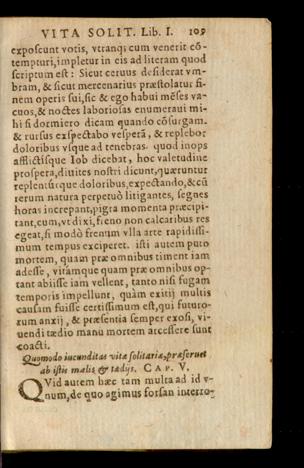 VITA SOLIT. Lib. I. 109
exposcunt votis, vtranq; cum venerit cō-
tempturi, impletur in eis ad literam quod
scriptum est: Sicut ceruus desiderat vm-
bram, & sicut mercenarius præstolatur fi-
nem operis sui, sic & ego habui mēses va-
cuos, & noctes laboriosas enumeraui mi-
hi si dormiero dicam quando cōsurgam.
& rursus exspectabo vesperā, & replebor
doloribus vsque ad tenebras. quod inops
afflictisque Iob dicebat, hoc valetudine
prospera, diuites nostri dicunt, quæruntur
replentúrque doloribus, expectando, & cū
rerum natura perpetuò litigantes, segnes
horas increpant, pigra momenta præcipi-
tant, cum, vt dixi, freno non calcaribus res
egeat, si modò frenum vlla arte rapidissi-
mum tempus exciperet. isti autem puto
mortem, quam præ omnibus timent iam
adesse, vitámque quam præ omnibus op-
tant abiisse iam vellent, tanto nisi fugam
temporis impellunt, quàm exitij multis
causam fuisse certissimum est, qui futuro-
rum anxij, & præsentia semper exosi, vi-
uendi tædio manu mortem arcessere sunt
coacti.
Quomodo iucunditas vitæ solitariæ, præseruet
ab istis malis & tædijs. CAP. V.
QVid autem hæc tam multa ad id v-
num, de quo agimus forsan interro-